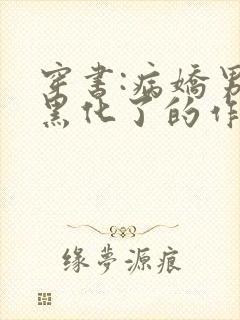 穿书:病娇男
黑化了的作
缘夢源痕